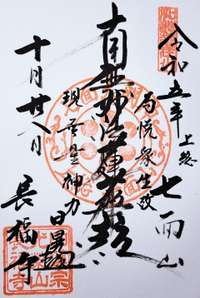 令和五年
上総
七面山
為悦衆生故
南無妙法蓮華経
現無量神力
日
十月廿八日
長福寺